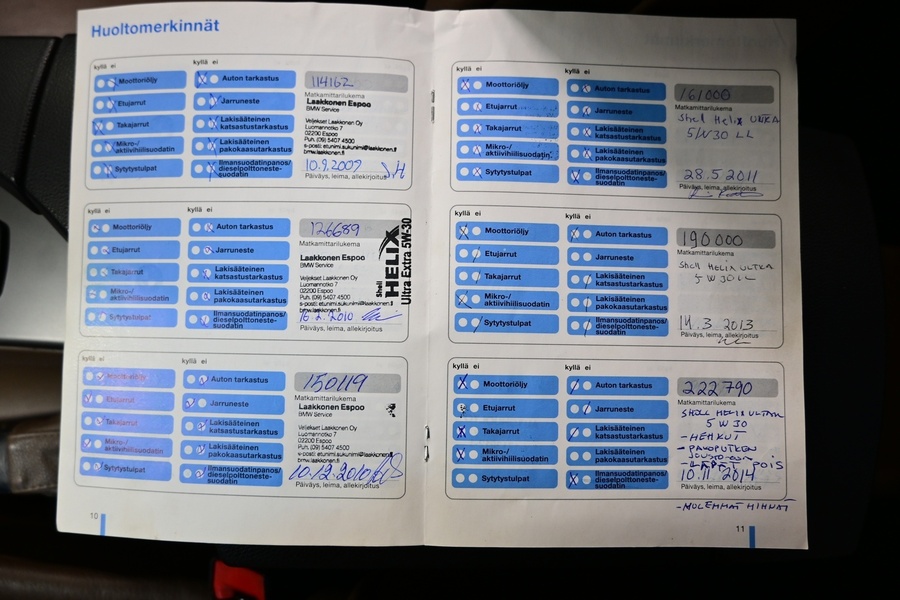 Huoltomerkinnät
kyllä ei
kyllä ei
Moottoriöljy
Etujarrut
Takajarrut
Mikro-/
aktiivihiilisuodatin
Sytytystulpat
Auton tarkastus
Jarruneste
Lakisääteinen
katsastustarkastus
Lakisääteinen
pakokaasutarkastus
Ilmansuodatinpanos/
dieselpolttoneste-
suodatin
114162
Matkamittarilukema
Laakkonen Espoo
BMW Service
Veljekset Laakkonen Oy
Luomannotko 7
02200 Espoo
Puh. (09) 5407 4500
s-posti: etunimi.sukunimi@laakkonen.fi
bmw.laakkonen.fi
10.9.2009
Päiväys, leima, allekirjoitus
kyllä ei
kyllä ei
Moottoriöljy
Etujarrut
Takajarrut
Mikro-/
aktiivihiilisuodatin
Sytytystulpat
Auton tarkastus
Jarruneste
Lakisääteinen
katsastustarkastus
Lakisääteinen
pakokaasutarkastus
Ilmansuodatinpanos/
dieselpolttoneste-
suodatin
126689
Matkamittarilukema
Laakkonen Espoo
BMW Service
Veljekset Laakkonen Oy
Luomannotko 7
02200 Espoo
Puh. (09) 5407 4500
s-posti: etunimi.sukunimi@laakkonen.fi
bmw.laakkonen.fi
2010
Päiväys, leima, allekirjoitus
Shell
HELIX
Ultra Extra 5W-30
kyllä ei
kyllä ei
Moottoriöljy
Etujarrut
Takajarrut
Mikro-/
aktiivihiilisuodatin
Sytytystulpat
Auton tarkastus
Jarruneste
Lakisääteinen
katsastustarkastus
Lakisääteinen
pakokaasutarkastus
Ilmansuodatinpanos/
dieselpolttoneste-
suodatin
150119
Matkamittarilukema
Laakkonen Espoo
BMW Service
Veljekset Laakkonen Oy
Luomannotko 7
02200 Espoo
Puh. (09) 5407 4500
s-posti: etunimi.sukunimi@laakkonen.fi
bmw.laakkonen.fi
10.12.2010
Päiväys, leima, allekirjoitus
10
kyllä ei
kyllä ei
Moottoriöljy
Etujarrut
Takajarrut
Mikro-/
aktiivihiilisuodatin
Sytytystulpat
Auton tarkastus
Jarruneste
Lakisääteinen
katsastustarkastus
Lakisääteinen
pakokaasutarkastus
Ilmansuodatinpanos/
dieselpolttoneste-
suodatin
161000
Matkamittarilukema
Shell Helix ULTRA
5W30 LL
28.5.2011
Päiväys, leima, allekirjoitus
kyllä ei
kyllä ei
Moottoriöljy
Etujarrut
Takajarrut
Mikro-/
aktiivihiilisuodatin
Sytytystulpat
Auton tarkastus
Jarruneste
Lakisääteinen
katsastustarkastus
Lakisääteinen
pakokaasutarkastus
Ilmansuodatinpanos/
dieselpolttoneste-
suodatin
190000
Matkamittarilukema
Shell Helix ULTRA
5W30LL
14.3 2013
Päiväys, leima, allekirjoitus
kyllä ei
kyllä ei
Moottoriöljy
Etujarrut
Takajarrut
Mikro-/
aktiivihiilisuodatin
Sytytystulpat
Auton tarkastus
Jarruneste
Lakisääteinen
katsastustarkastus
Lakisääteinen
pakokaasutarkastus
Ilmansuodatinpanos/
dieselpolttoneste-
suodatin
222790
Matkamittarilukema
SHELL HELIX ULTRA
5W30
-HEHKUT
-PAKOPUTKEN
POIS
10.11 2014
Päiväys, leima, allekirjoitus
-MOLEMMAT HIHNAT
11